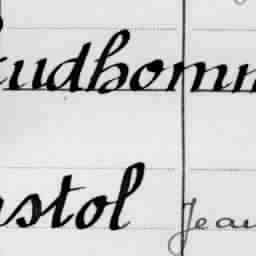 udhomm
stol Jean